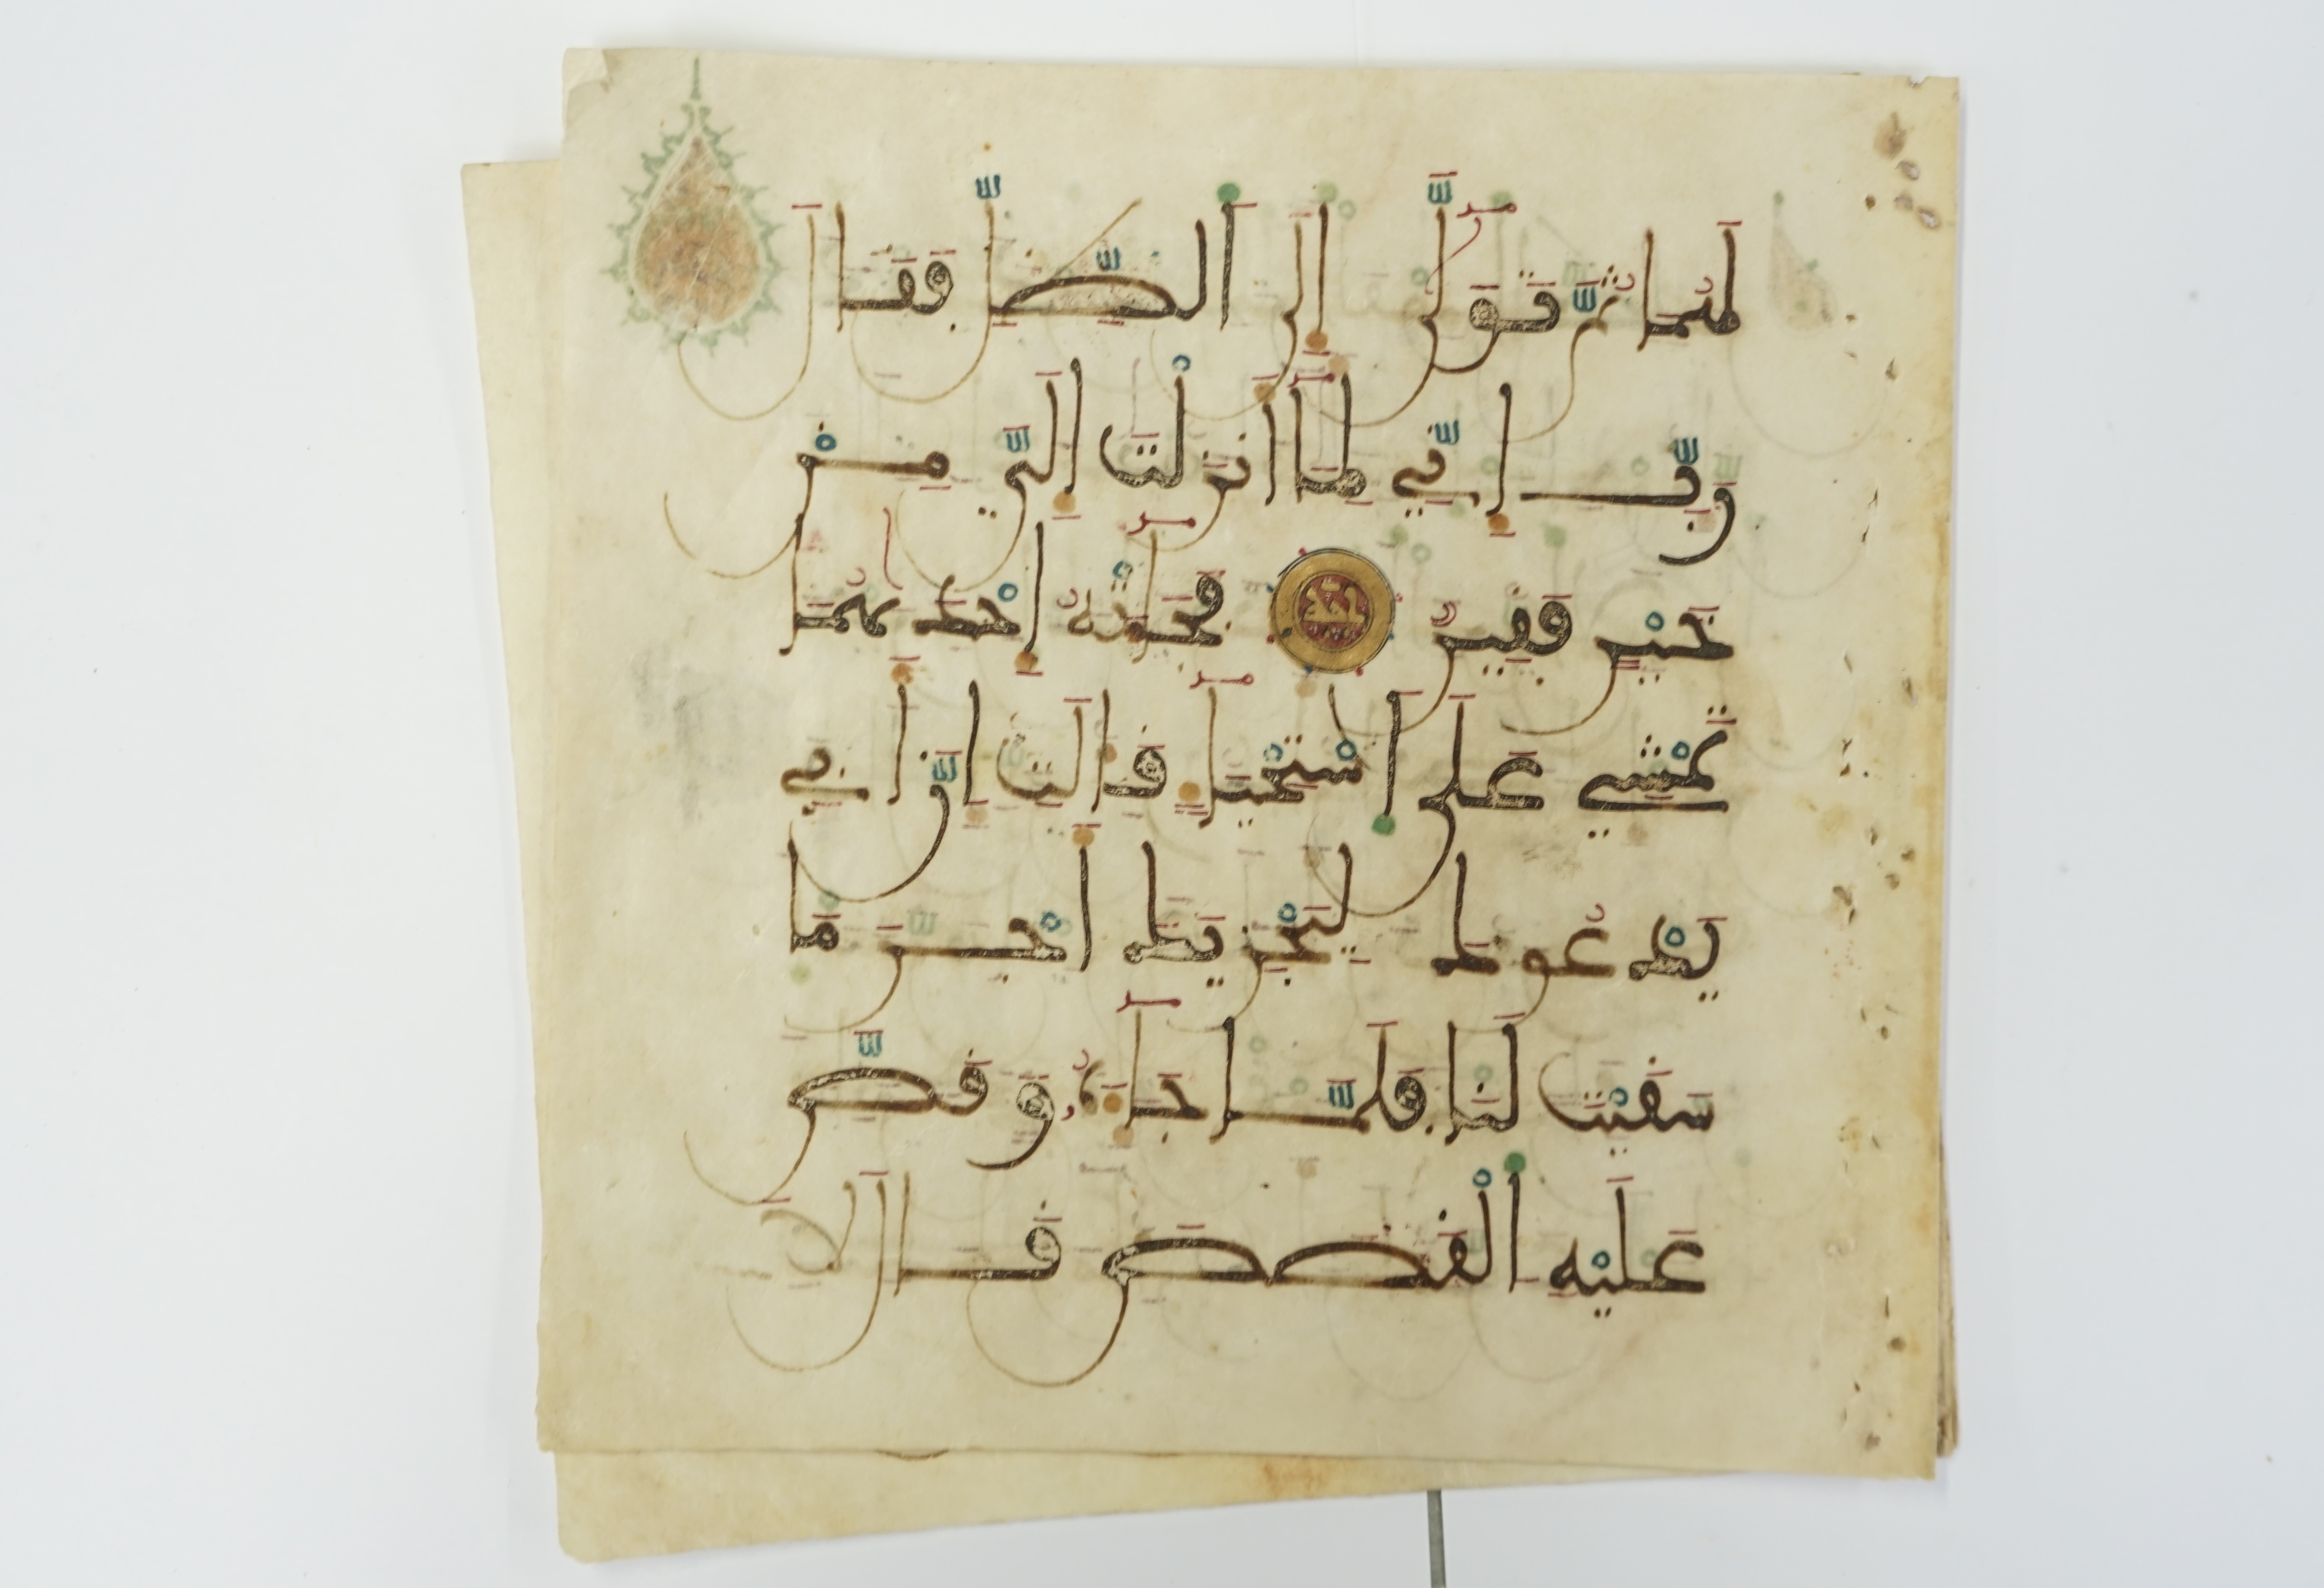 لَهُمَا ثُمَّ تَوَلَّىٰ إِلَى اَلظِّلِّ فَقَالَ
رَبِّ إِنِّي لِمَا أَنْزَلْتَ إِلَيَّ مِنْ
خَيْرٍ فَقِيرٌ فَجَآءَتْهُ إِحْدَيٰهُمَا
تَمْشِي عَلَى اَسْتِحْيَآءٍ قَالَتْ إِنَّ أَبِي
يَدْعُوكَ لِيَجْزِيَكَ أَجْرَ مَا
سَقَيْتَ لَنَا فَلَمَّا جَآءَهُ وَقَصَّ
عَلَيْهِ اَلْقَصَصَ قَالَ لَا